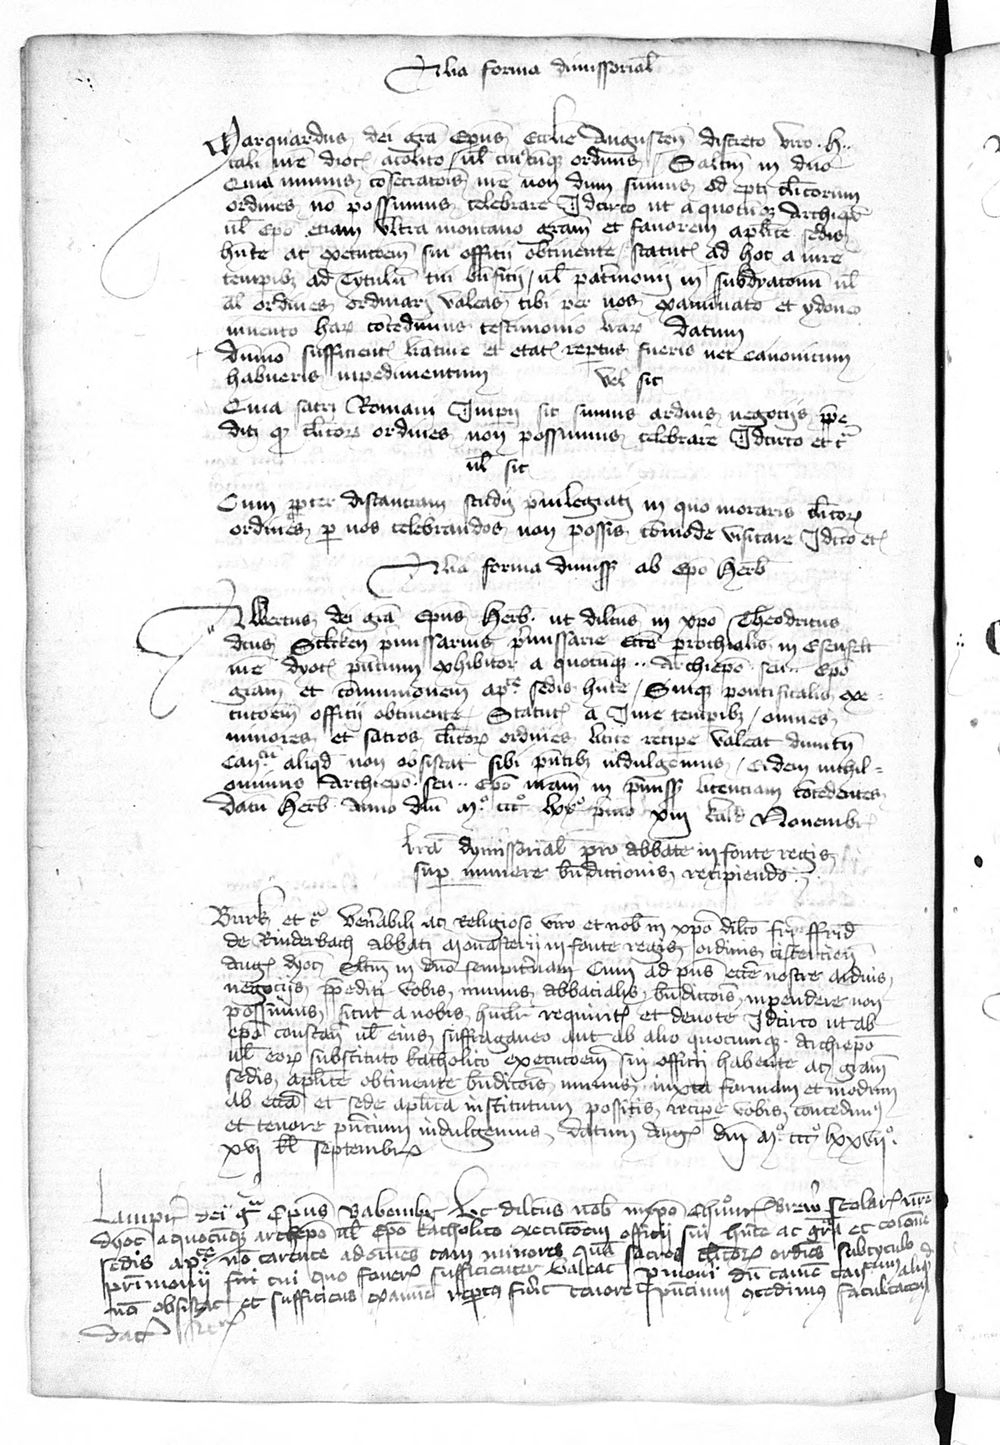 Alia forma dimissorial
Marquardus dei gra Epus Ecclie Augusten discreto viro H..
tali nre dioc acolito / ul cuicunq ordinis / Saltm in dno
Quia munus cosecratois nre non dum sumus ad epti clicorum
ordines no possumus celebrare Idcirco ut a quocuq Archiepo
ul Epo etiam ultra montano gram et fauorem aplice sedis
hnte ac executoem sui officii obtinente statut ad hoc a iure
temporib ad Tytulu tui bnficii / ul patmonii in subdyaconu ul
al ordines ordinari valeas tibi per nos examinato et ydoneo
inuento har concedimus testimonio lrar Datum
dumo sufficient lrature et etat repertus fueris nec canonicum
habueris inpedimentum vel sic
Quia sacri Romani Imperii sic sumus arduis negociis ppe
diti q clicor ordines non possumus celebrare Idcirco et c
ul sic
Cum ppter distanciam studii priuilegiati in quo moraris clicor
ordines p nos celebrandos non possis comode visitare Idcirco etc
Alia forma dimiss ab Epo Herb
Albertus dei gra Epus Herb. ut dilcus in xpo Theodricus
dcus premissarius pmissarie Ecce prochialis in Esenfelt
nre dyoc pncium exhibitor a quocunq .. Archiepo seu .. Epo
gram et comunionem ap sedis hnte / Suiq pontificalis exe-
cutoem officii obtinente Statut a Iure temporib / omnes
minores et sacros clicor ordines licite recipe valeat dumm
Can aliqd non obsistat sibi pntib indulgemus / Eidem nichil-
ominus Archiepo seu .. Epo nram in pmiss licenciam concedentes
Datu Herb Anno dni M ccc lxx pmo xiii kald Nouembr
lra dymissorial pro abbate in fonte regis
sup munere bndictionis recipiendo
Burk et c venabili ac religioso viro et nob in xpo dilco fri ffrid
de Rinderbach abbati Monasterii in fonte regis ordinis cistercien
Aug dyoc Sltm in dno sempiternam Cum ad pns ecce nostre arduis
negociis ppediti vobis munus abbacialis bndictois inpendere non
possimus sicut a nobis humilr requirit et deuote Idcirco ut ab
epo constan ul eius suffraganeo aut ab alio quocunq Archiepo
ul eor substituto katholico executoem sui officii habente ac gram
sedis aplice obtinente bndictois munus iuxta formam et modum
ab ecca et sede aplica institutum possitis recipe vobis concedim
et tenore pncium indulgemus Datum Aug dni M ccc lxxvii
xvi kl septembr
Lamp dei gra Epus Babenbr Ut dilcus nob in xpo scolar nre
dyoc a quocunq archepo ul Epo katholico executoem officii sui hnte ac gra et coione
sedis ap no carente ad omes tam minores qua sacros clicor ordies sub tytulo
prmonii sui cui quo fouer sufficienter valeat pmoui du tame can aliq
no obsistat et sufficiens exanne repertus fuerit Tenore pncium cedimus facultatem
Dat